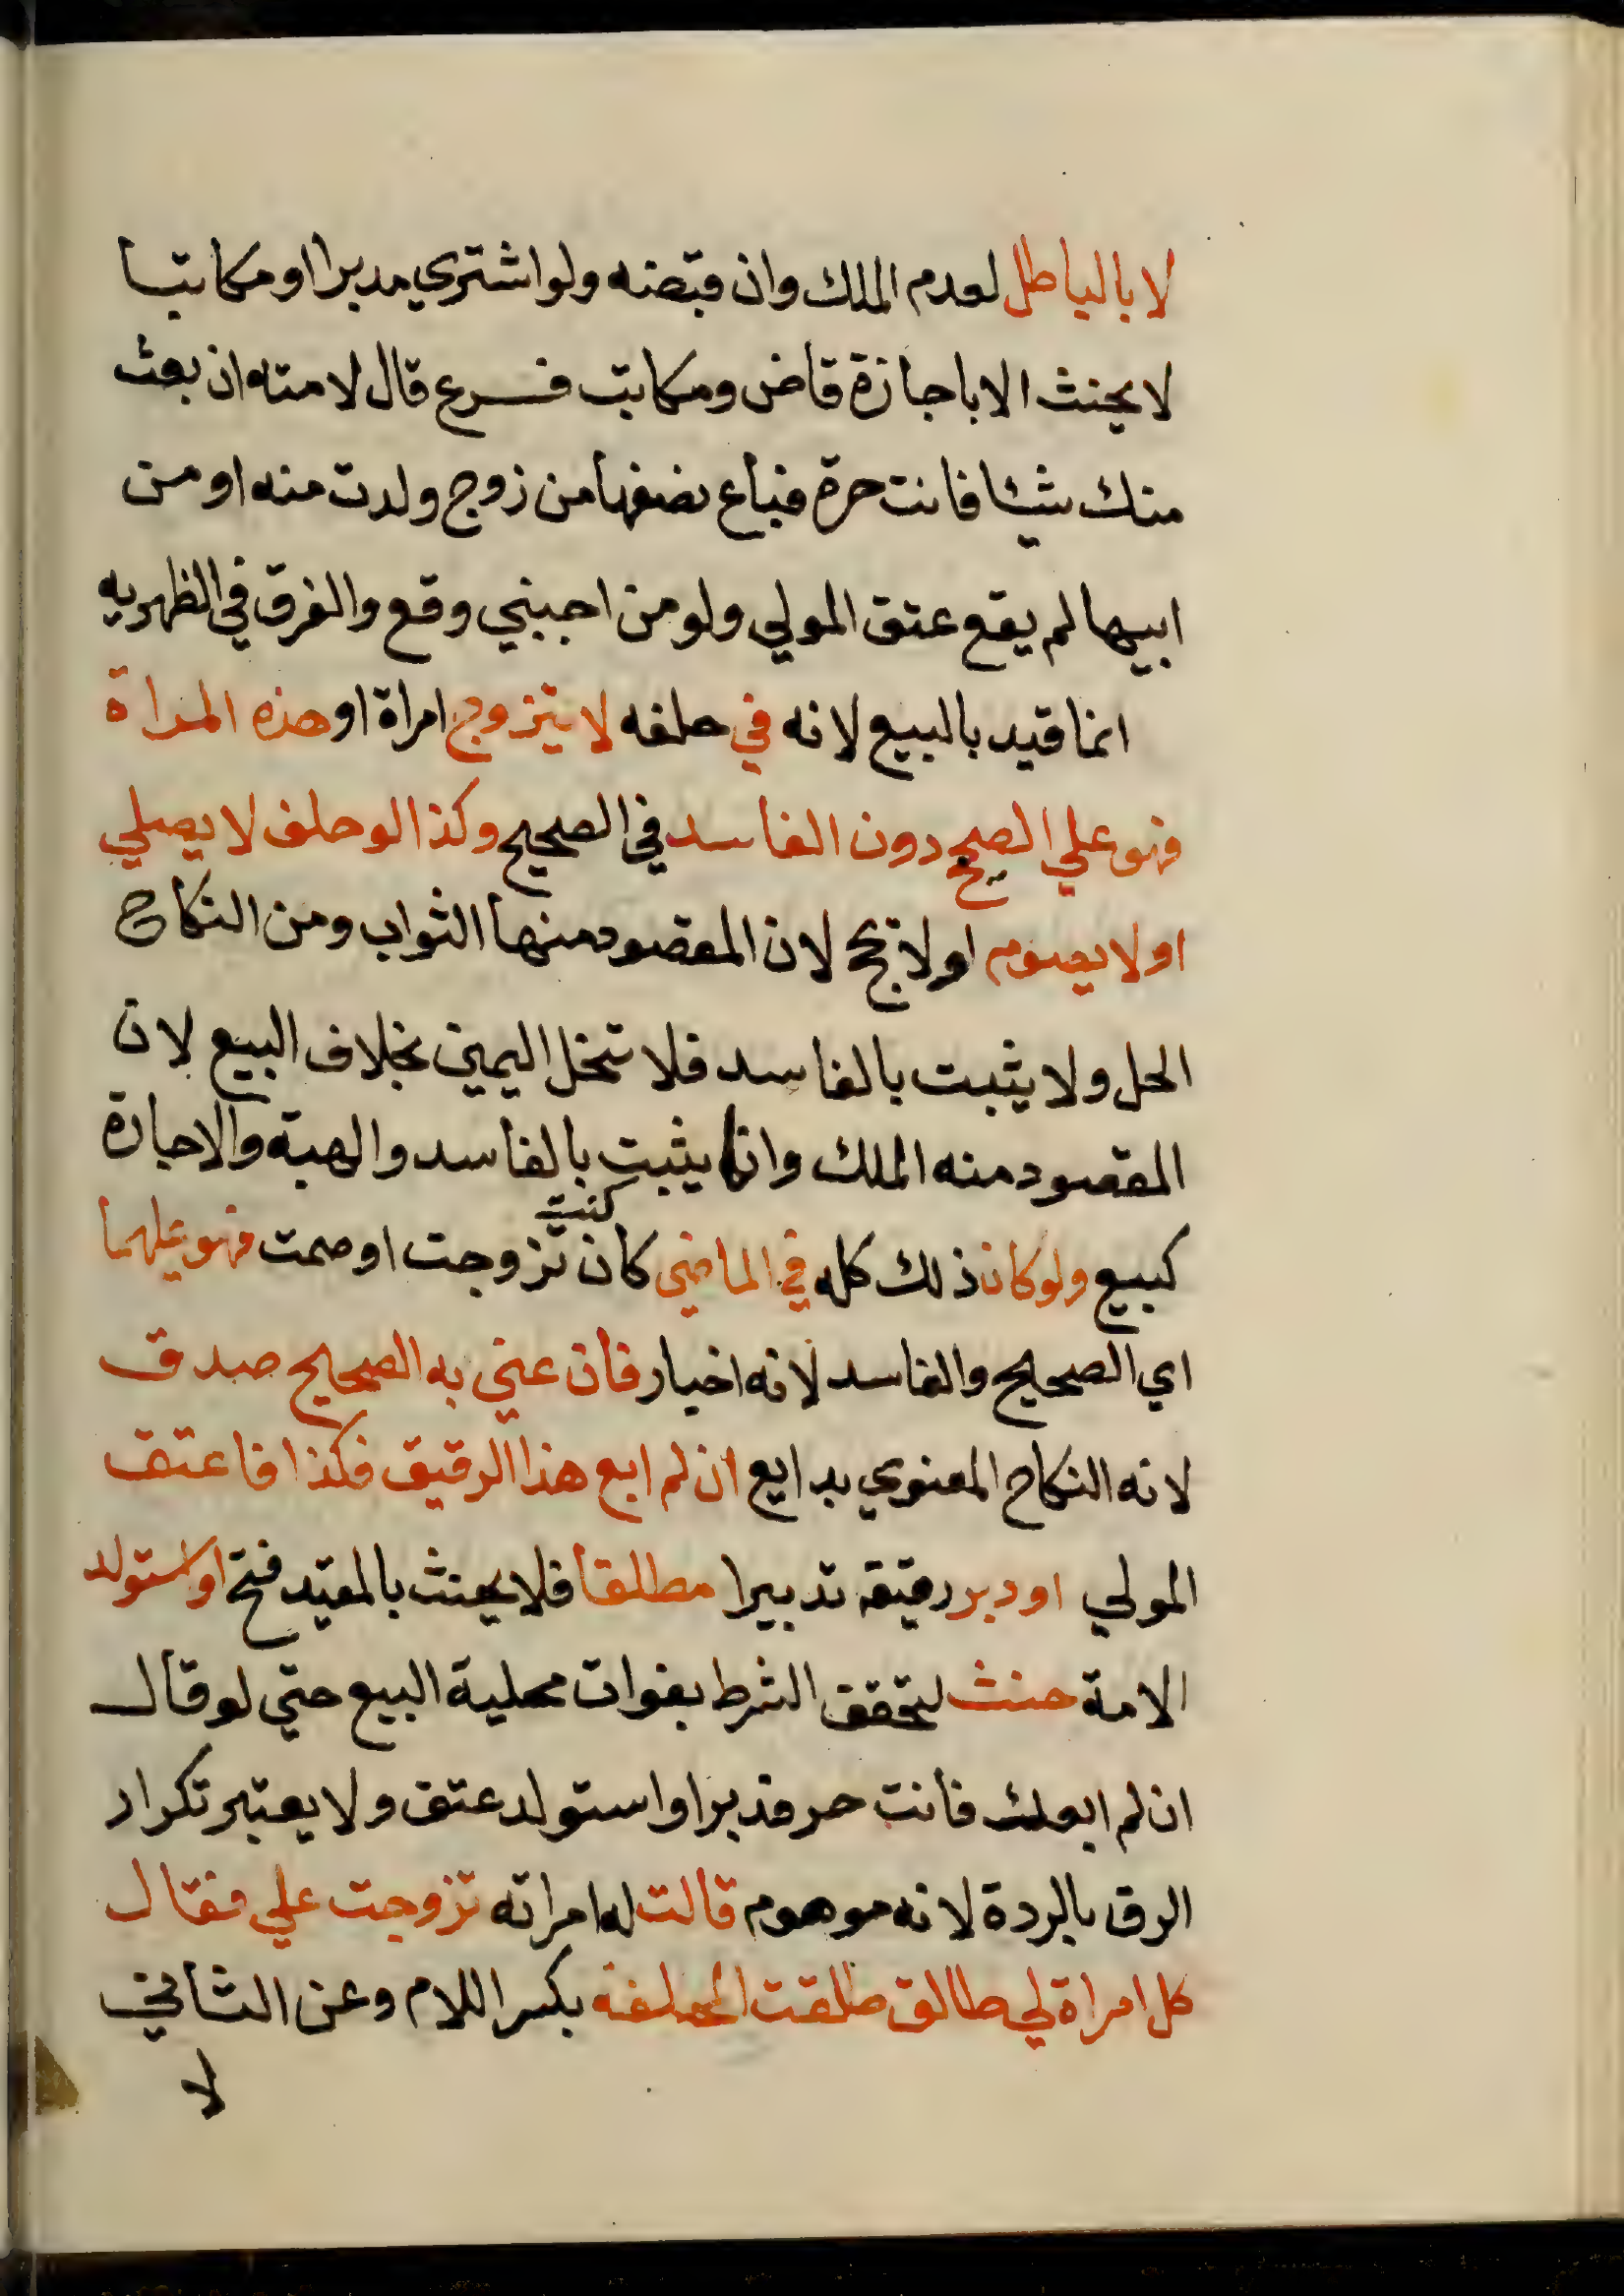 لا بالباطل لعدم الملك وان قبضه ولو اشتري مدبرا او مكاتبا
لا يحنث الا باجازة قاض ومكاتب فرع قال لامته ان بعث
منك شيئا فانت حرة فباع نصفها من زوج ولدت منه او من
ابيها لم يقع عتق المولي ولو من اجنبي وقع والفرق في الظهريه
انما قيد بالبيع لانه في حلفه لا يتزوج امراة او هذه المراة
فهو علي الصحيح دون الفاسد في الصحيح وكذا لو حلف لا يصلي
او لا يصوم او لا يحج لان المقصود منها الثواب ومن النكاح
الحل ولا يثبت بالفاسد فلا تنحل اليمين بخلاف البيع لان
المقصود منه الملك وانما يثبت بالفاسد والهبة والاجارة
كبيع ولو كان ذلك كله في الماضي كان كنت تزوجت او صمت فهو عليهما
اي الصحيح والفاسد لانه اخبار فان عني به الصحيح صدق
لانه النكاح المعنوي بدايع ان لم ابع هذا الرقيق فكذا فاعتق
المولي او دبر رقيقه تدبيرا مطلقا فلا يحنث بالمقيد فتح او استولد
الامة حنث لتحقق الشرط بفوات محلية البيع حتي لو قال
ان لم ابعك فانت حر فدبر او استولد عتق ولا يعتبر تكرار
الرق بالردة لانه موهوم قالت له امراته تزوجت علي فقال
كل امراة لي طالق طلقت المحلفة بكسر اللام وعن الثاني
لا